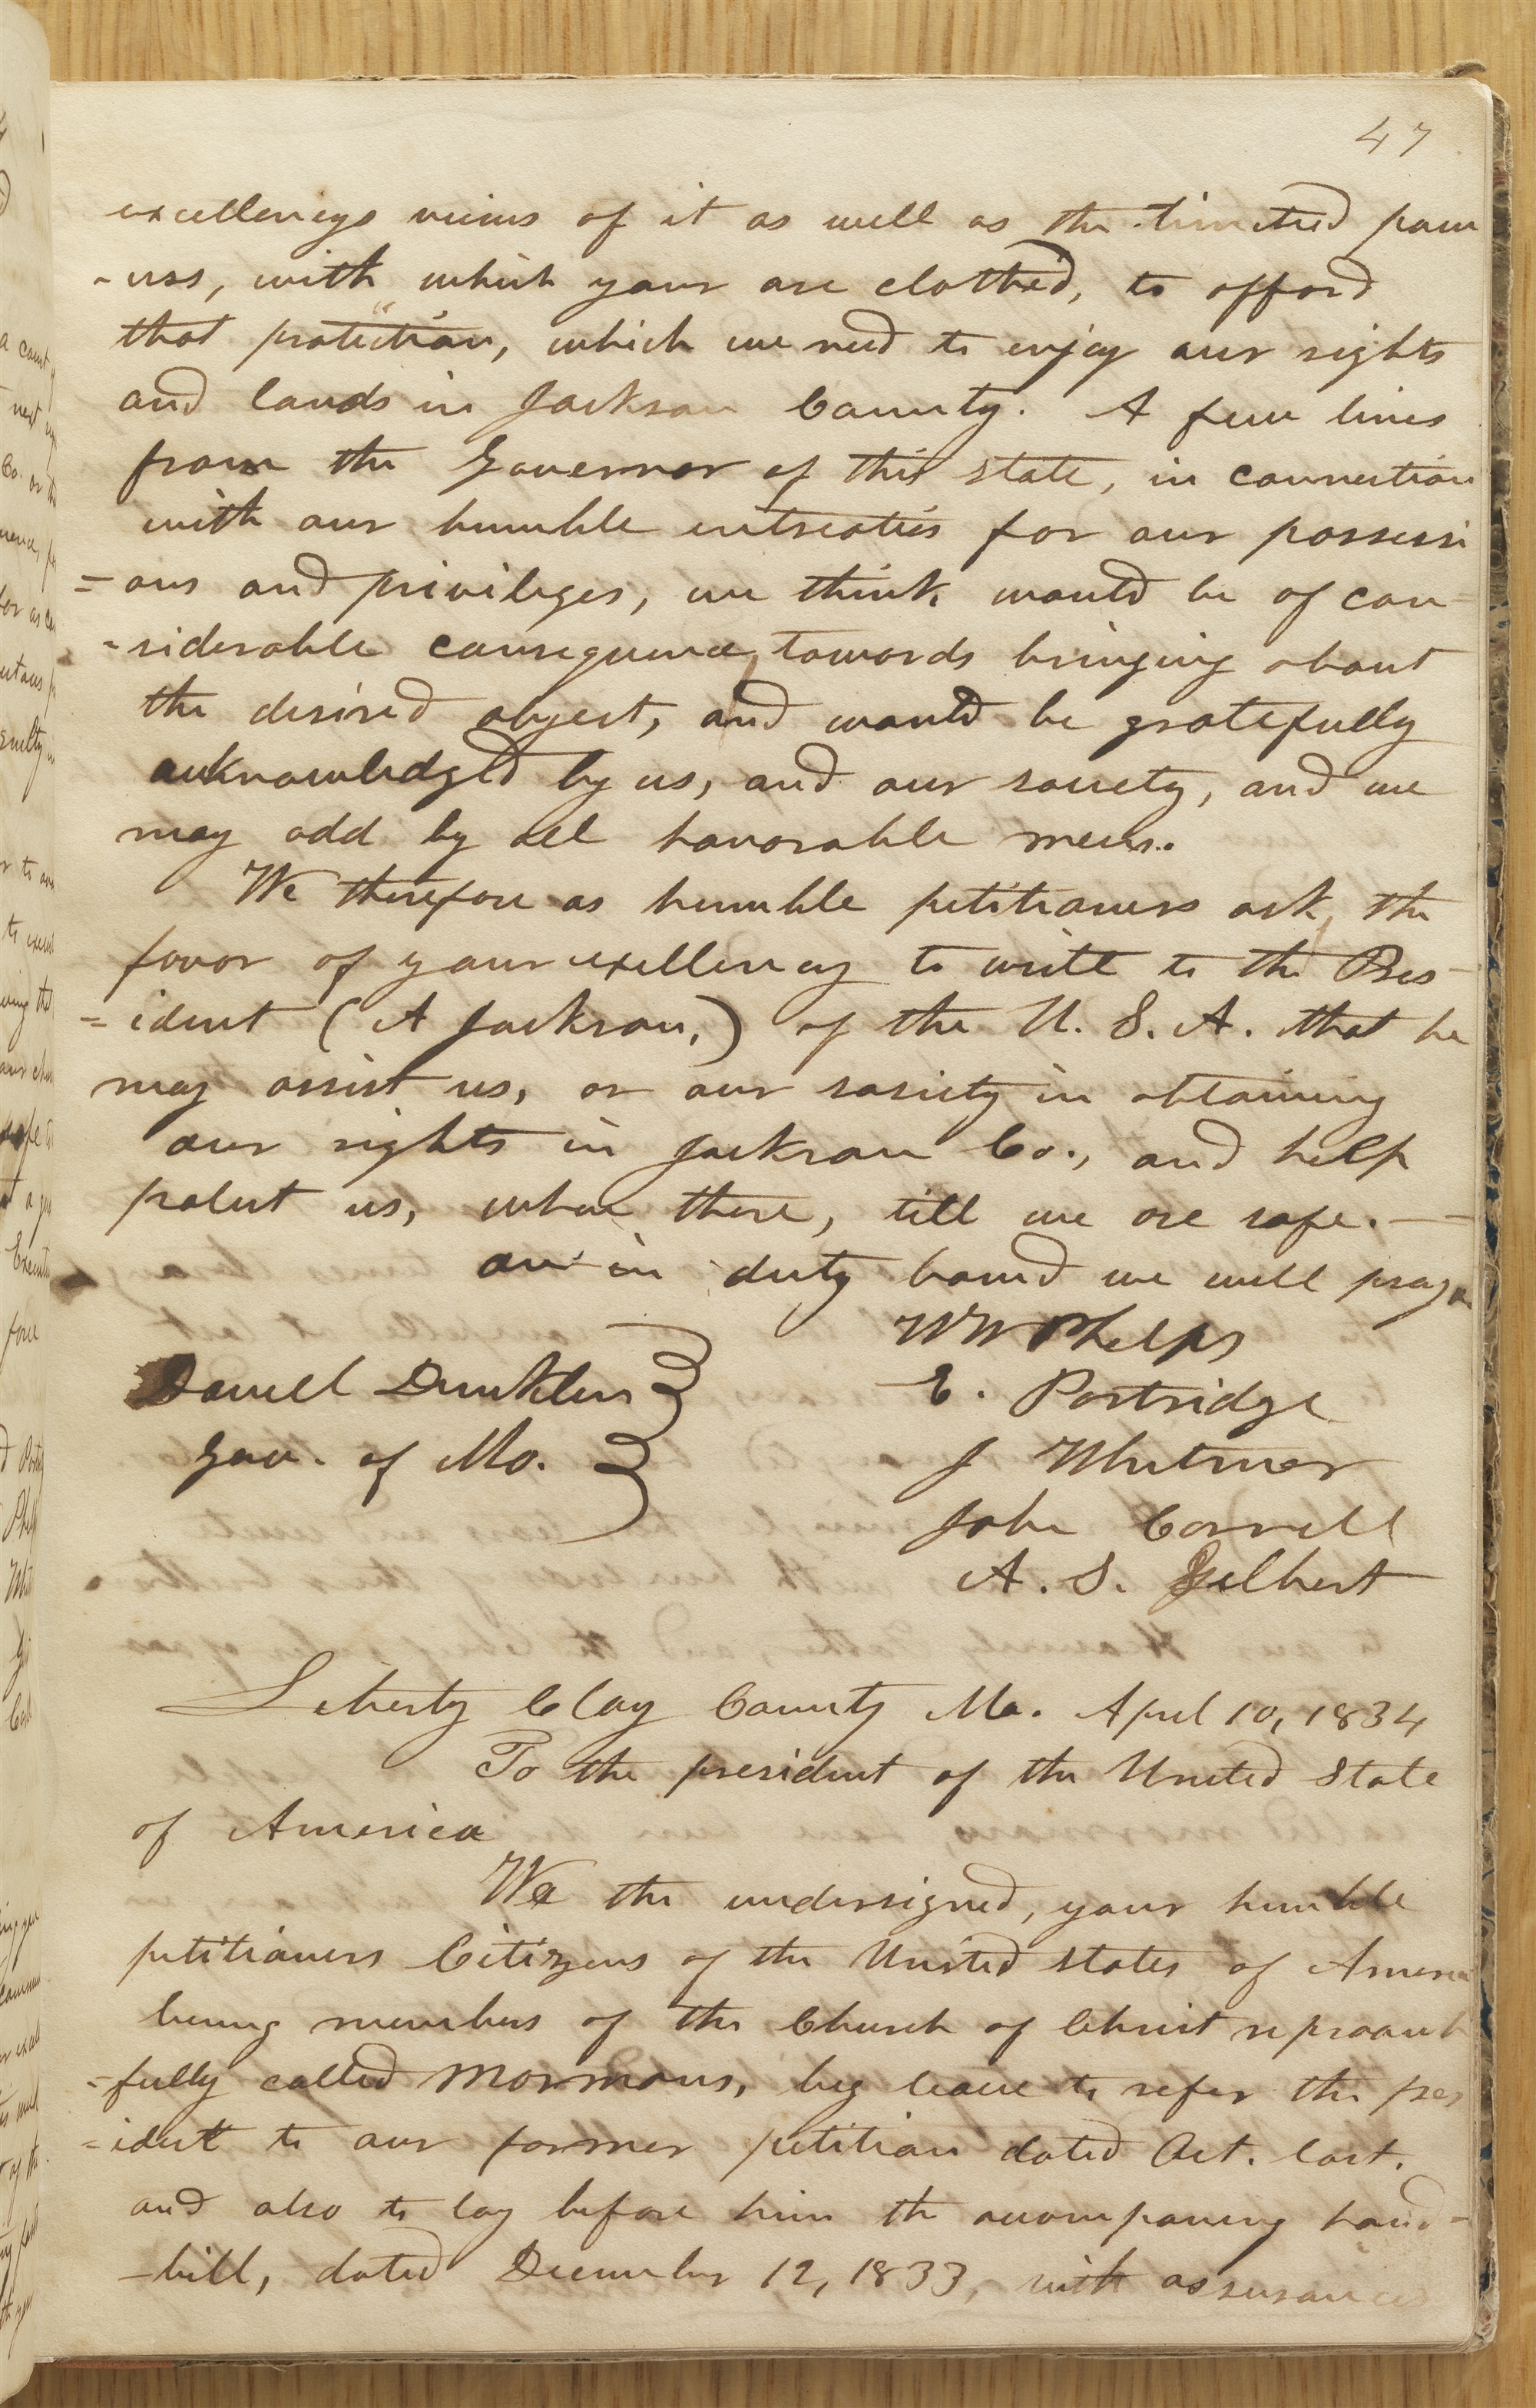 47
excellencys views of it as well as the limited pow
-ers, with which your are clothed, to afford
that protection, which we need to enjoy our rights
and lands in Jackson County. A few lines
from the Governor of this state, in connection
with our humble entreaties for our possessi
=ons and privileges, we think would be of con
-siderable consequence, towards bringing about
the desired object, and would be gratefully
acknowledged by us, and our society, and we
may add by all honorable men.
We therefore as humble petitioners ask, the
favor of your excellency to write to the Pres-
=ident (A Jackson,) of the U. S. A. that he
may assist us, or our society in obtaining
our rights in Jackson Co., and help
protect us, when there, till we are safe. —
in duty bound we will pray
WW Phelps
Daniel Dunklin
E. Partridge
Gov. of Mo.
J Whitmer
John Corrill
A. S. Gilbert
Liberty Clay County Mo. April 10, 1834
To the president of the United State
of America
We the undersigned, your humble
petitioners Citizens of the United States of Ameri
being members of the Church of Christ reproach
=fully called Mormons, beg leave to refer the pres
=ident to our former petition dated Oct. last.
and also to lay before him the accompaning hand-
-bill, dated December 12, 1833, with assurances